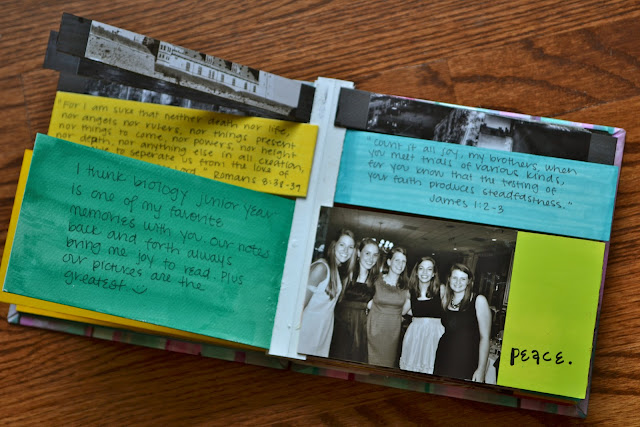 "For I am sure that neither death nor life,
nor angels nor rulers, nor things present
nor things to come, nor powers, nor height
nor depth, nor anything else in all creation,
to seperate us from the love of
Lord. Romans 8:38-39
I think biology junior year
is one of my favorite
memories with you. Our notes
back and forth always
bring me joy to read. Plus
our pictures are the
greatest :)
"Count it all joy, my brothers, when
you meet trials of various kinds,
for you know that the testing of
your faith produces steadfastness."
James 1:2-3
peace.